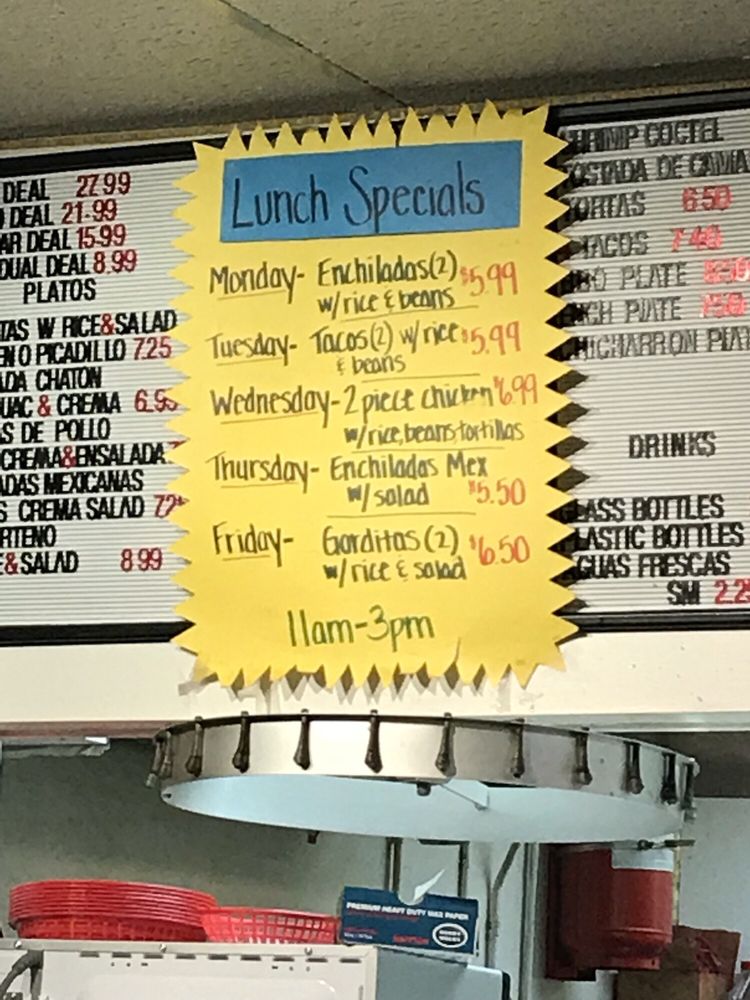 DEAL 27.99
DEAL 21-99
AR DEAL 15-99
DUAL DEAL 8.99
PLATOS
TAS W RICE&SALAD
EN O PICADILLO 7.25
ADA CHATON
UAC & CREMA 6.95
S DE POLLO
CREMA&ENSALADA
ADAS MEXICANAS
S CREMA SALAD
RTENO
E&SALAD 8.99
Lunch Specials
Monday- Enchiladas(2) $5.99
w/rice & beans
Tuesday- Tacos(2) w/rice $5.99
& beans
Wednesday- 2 piece chicken $6.99
w/rice, beans, tortillas
Thursday- Enchiladas Mex
w/salad $5.50
Friday- Gorditas (2) $6.50
w/rice & salad
11am-3pm
SHRIMP COCTEL
TOSTADA DE CAMA
TORTAS 6.50
TACOS 7.40
PLATE
PLATE
CHICHARRON PLAT
DRINKS
GLASS BOTTLES
PLASTIC BOTTLES
AGUAS FRESCAS
SM 2.25
PREMIUM HEAVY DUTY WAX PAPER